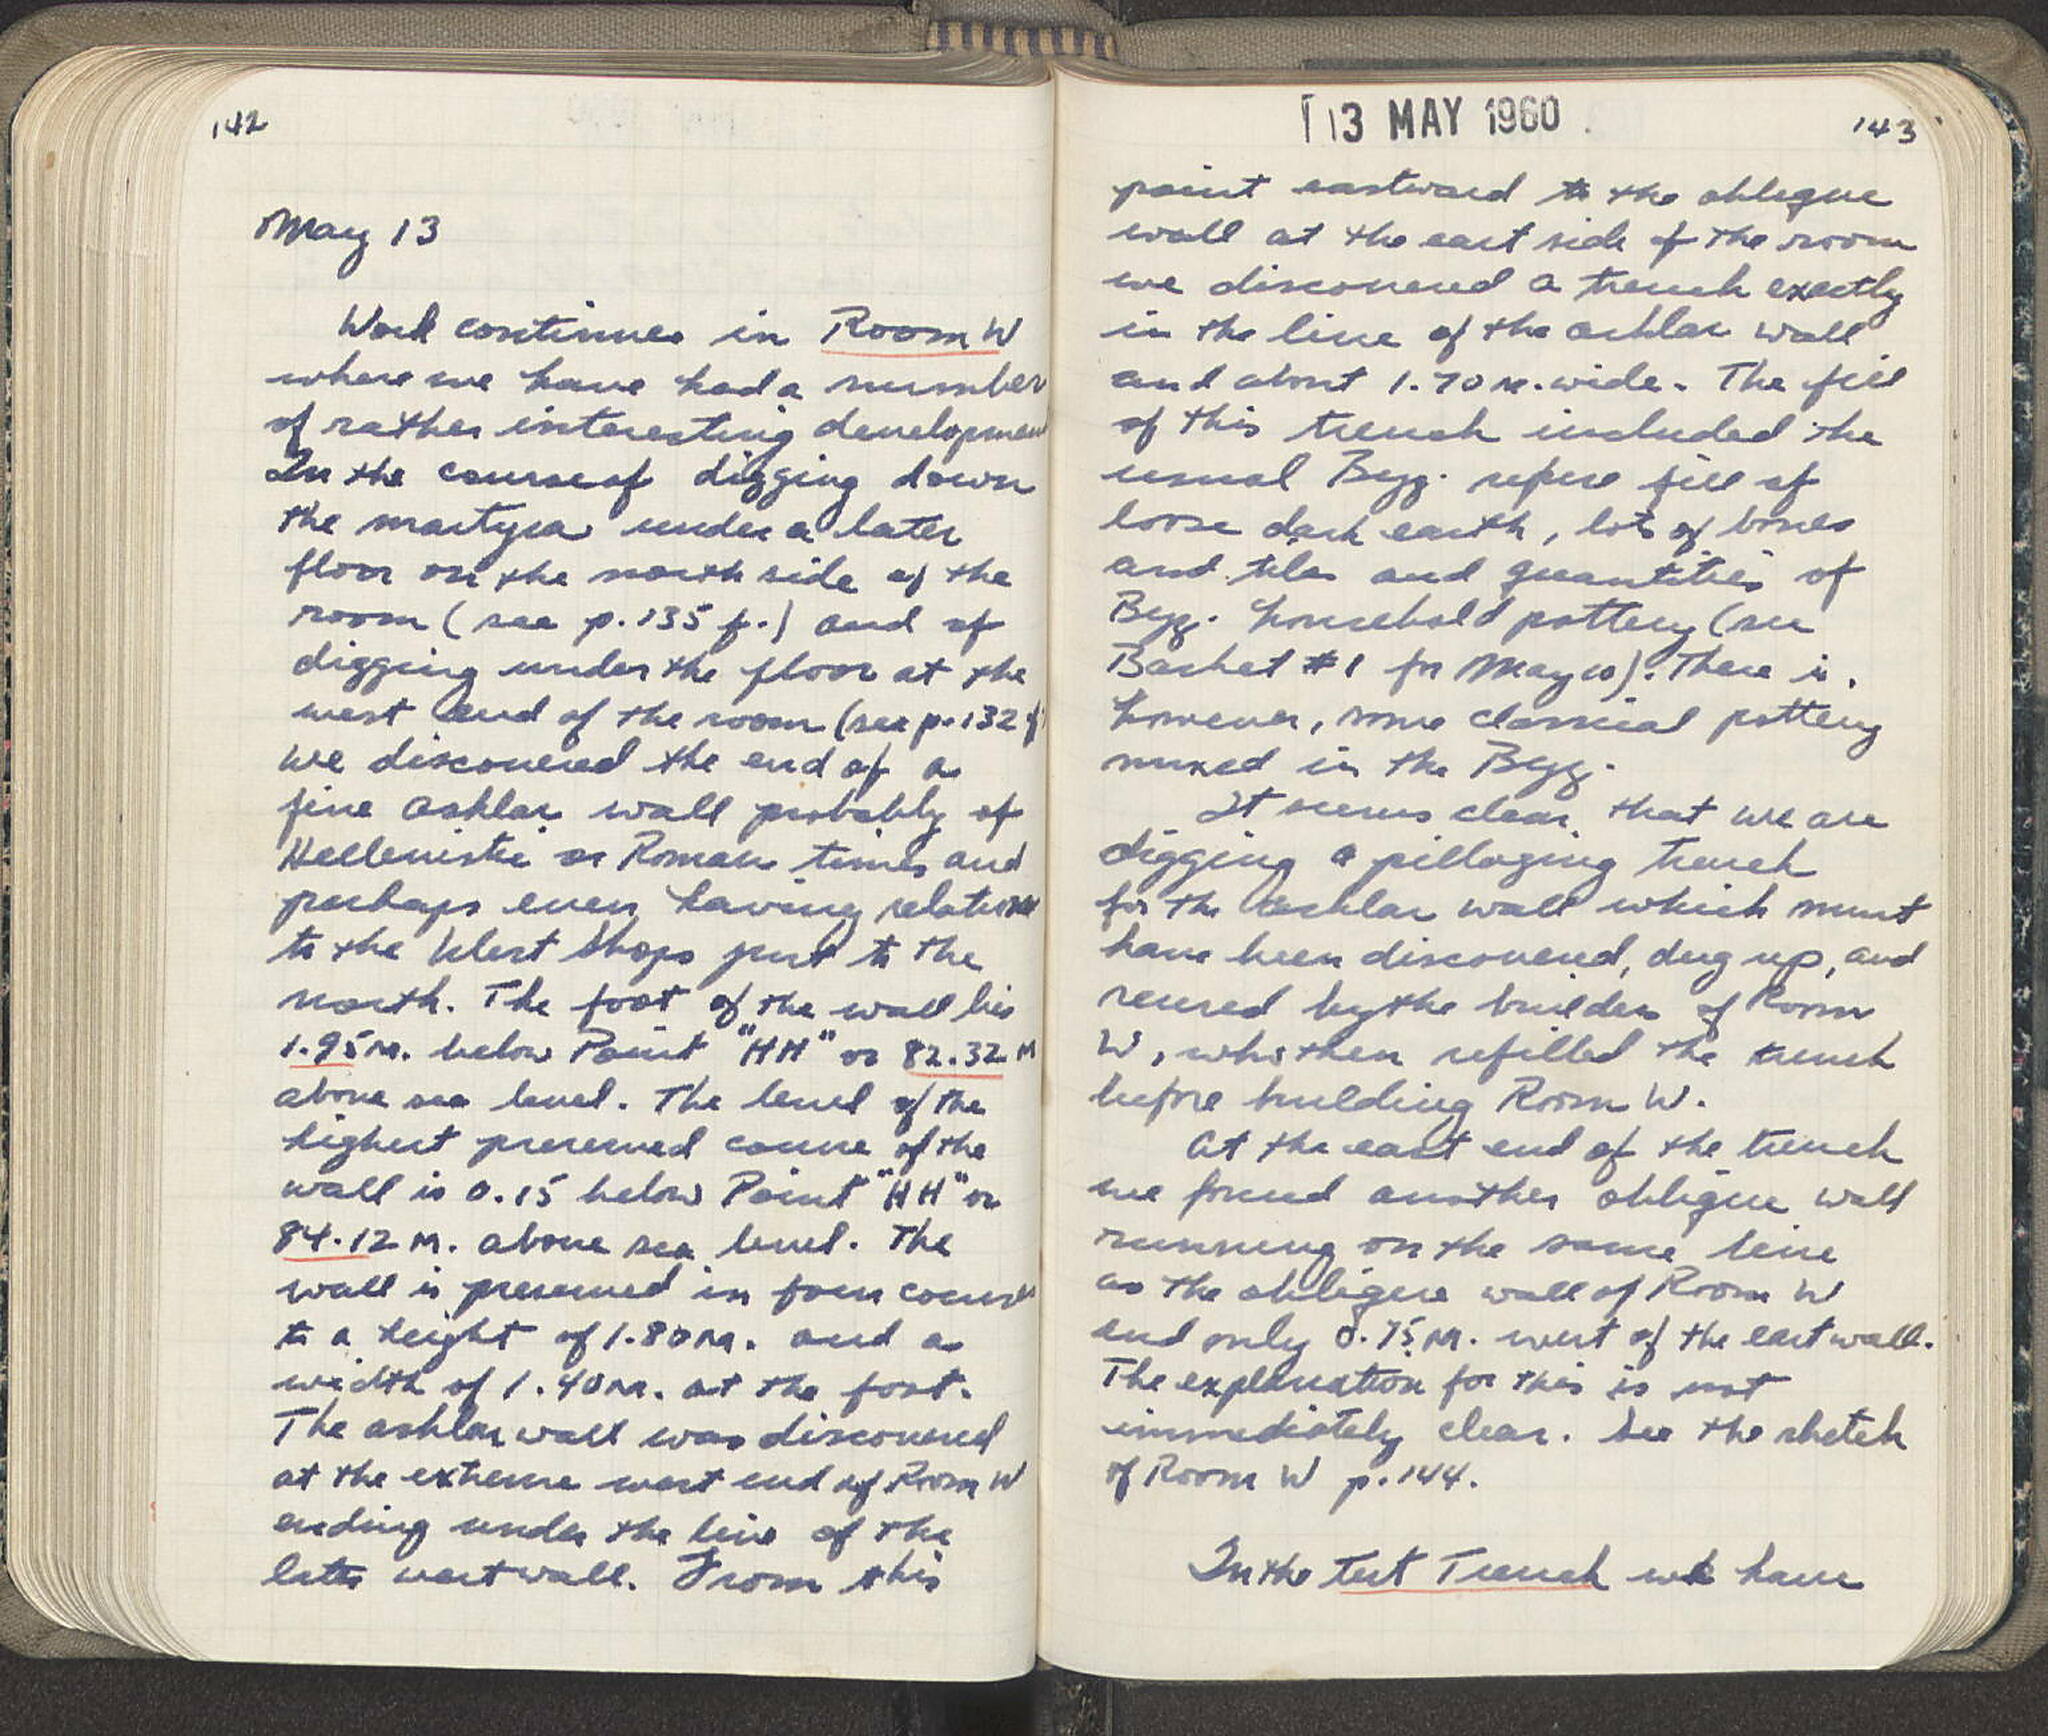 142
May 13
Work continues in Room W
where we have had a number
of rather interesting developmen
In the course of digging down
the martyra under a later
floor on the north side of the
room (see p. 135 f.) and of
digging under the floor at the
west end of the room (see p. 132 f
we discovered the end of a
fine ashlar wall probably of
Hellenistic or Roman times and
perhaps even having relations
to the West Shops just to the
north. The foot of the wall lies
1.95 M. below Point "HH" or 82.32 M
above sea level. The level of the
highest preserved course of the
wall is 0.15 below Point "HH" or
84.12 M. above sea level. The
wall is preserved in four courses
to a height of 1.80 M. and a
width of 1.40 M. at the foot.
The ashlar wall was discovered
at the extreme west end of Room W
ending under the line of the
late west wall. From this
13 MAY 1960
143
point eastward to the oblique
wall at the east side of the room
we discovered a trench exactly
in the line of the ashlar wall
and about 1.70 M. wide. The fill
of this trench included the
usual Byz. refuse fill of
loose dark earth, lots of bones
and tiles and quantities of
Byz. household pottery (see
Basket #1 for May 10). There is,
however, some classical pottery
mixed in the Byz.
It seems clear that we are
digging a pillaging trench
for the ashlar wall which must
have been discovered, dug up, and
reused by the builders of Room
W, who then refilled the trench
before building Room W.
At the east end of the trench
we found another oblique wall
running on the same line
as the oblique wall of Room W
and only 0.75 M. west of the east wall.
The explanation for this is not
immediately clear. See the sketch
of Room W p. 144.
In the Test Trench we have